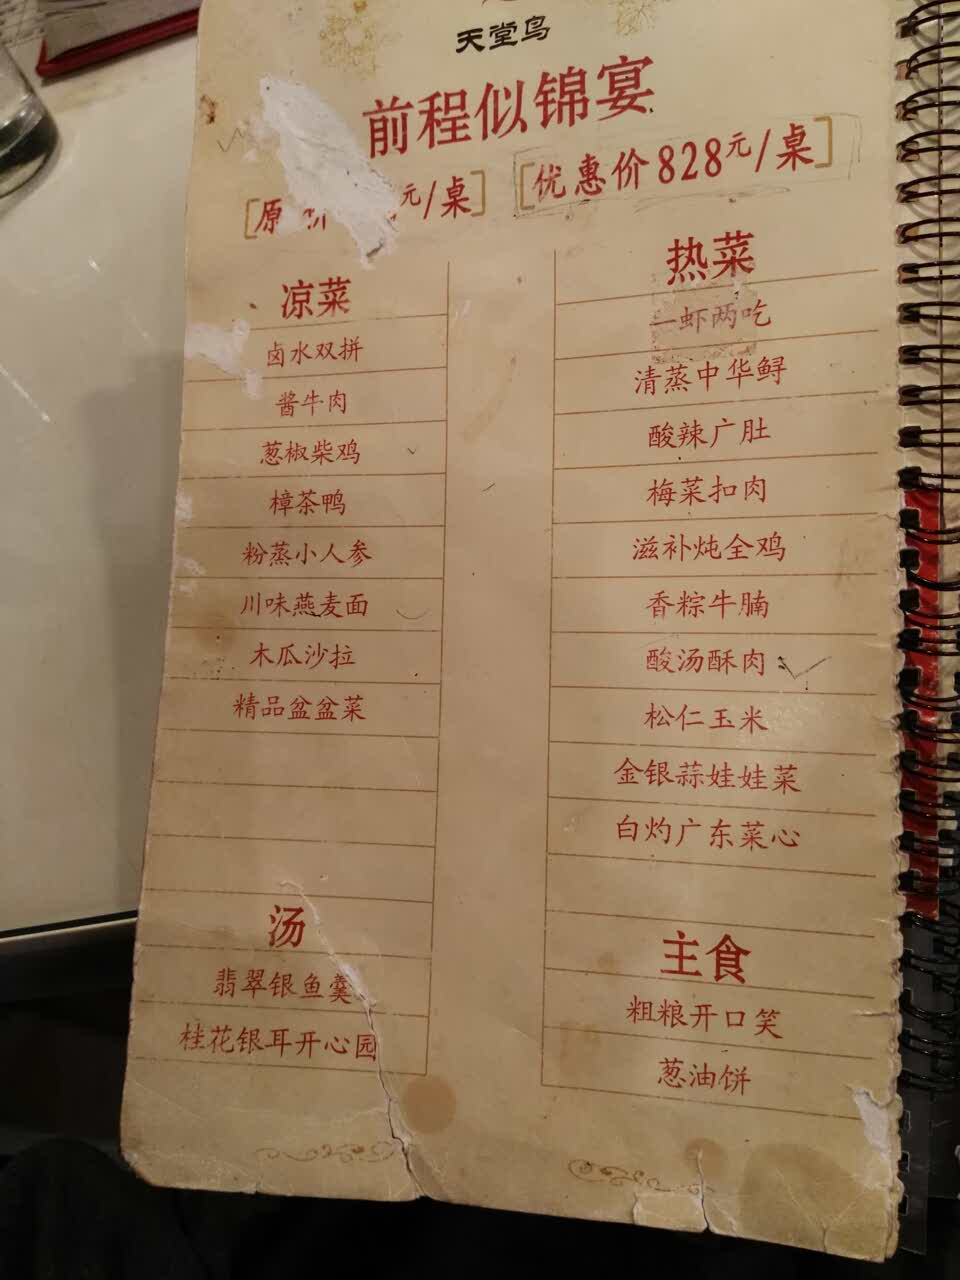 天堂鸟
前程似锦宴
[原 价 元/桌] [优惠价828元/桌]
凉菜
卤水双拼
酱牛肉
葱椒柴鸡
樟茶鸭
粉蒸小人参
川味燕麦面
木瓜沙拉
精品盆盆菜
汤
翡翠银鱼羹
桂花银耳开心园
热菜
一虾两吃
清蒸中华鲟
酸辣广肚
梅菜扣肉
滋补炖全鸡
香粽牛腩
酸汤酥肉
松仁玉米
金银蒜娃娃菜
白灼广东菜心
主食
粗粮开口笑
葱油饼